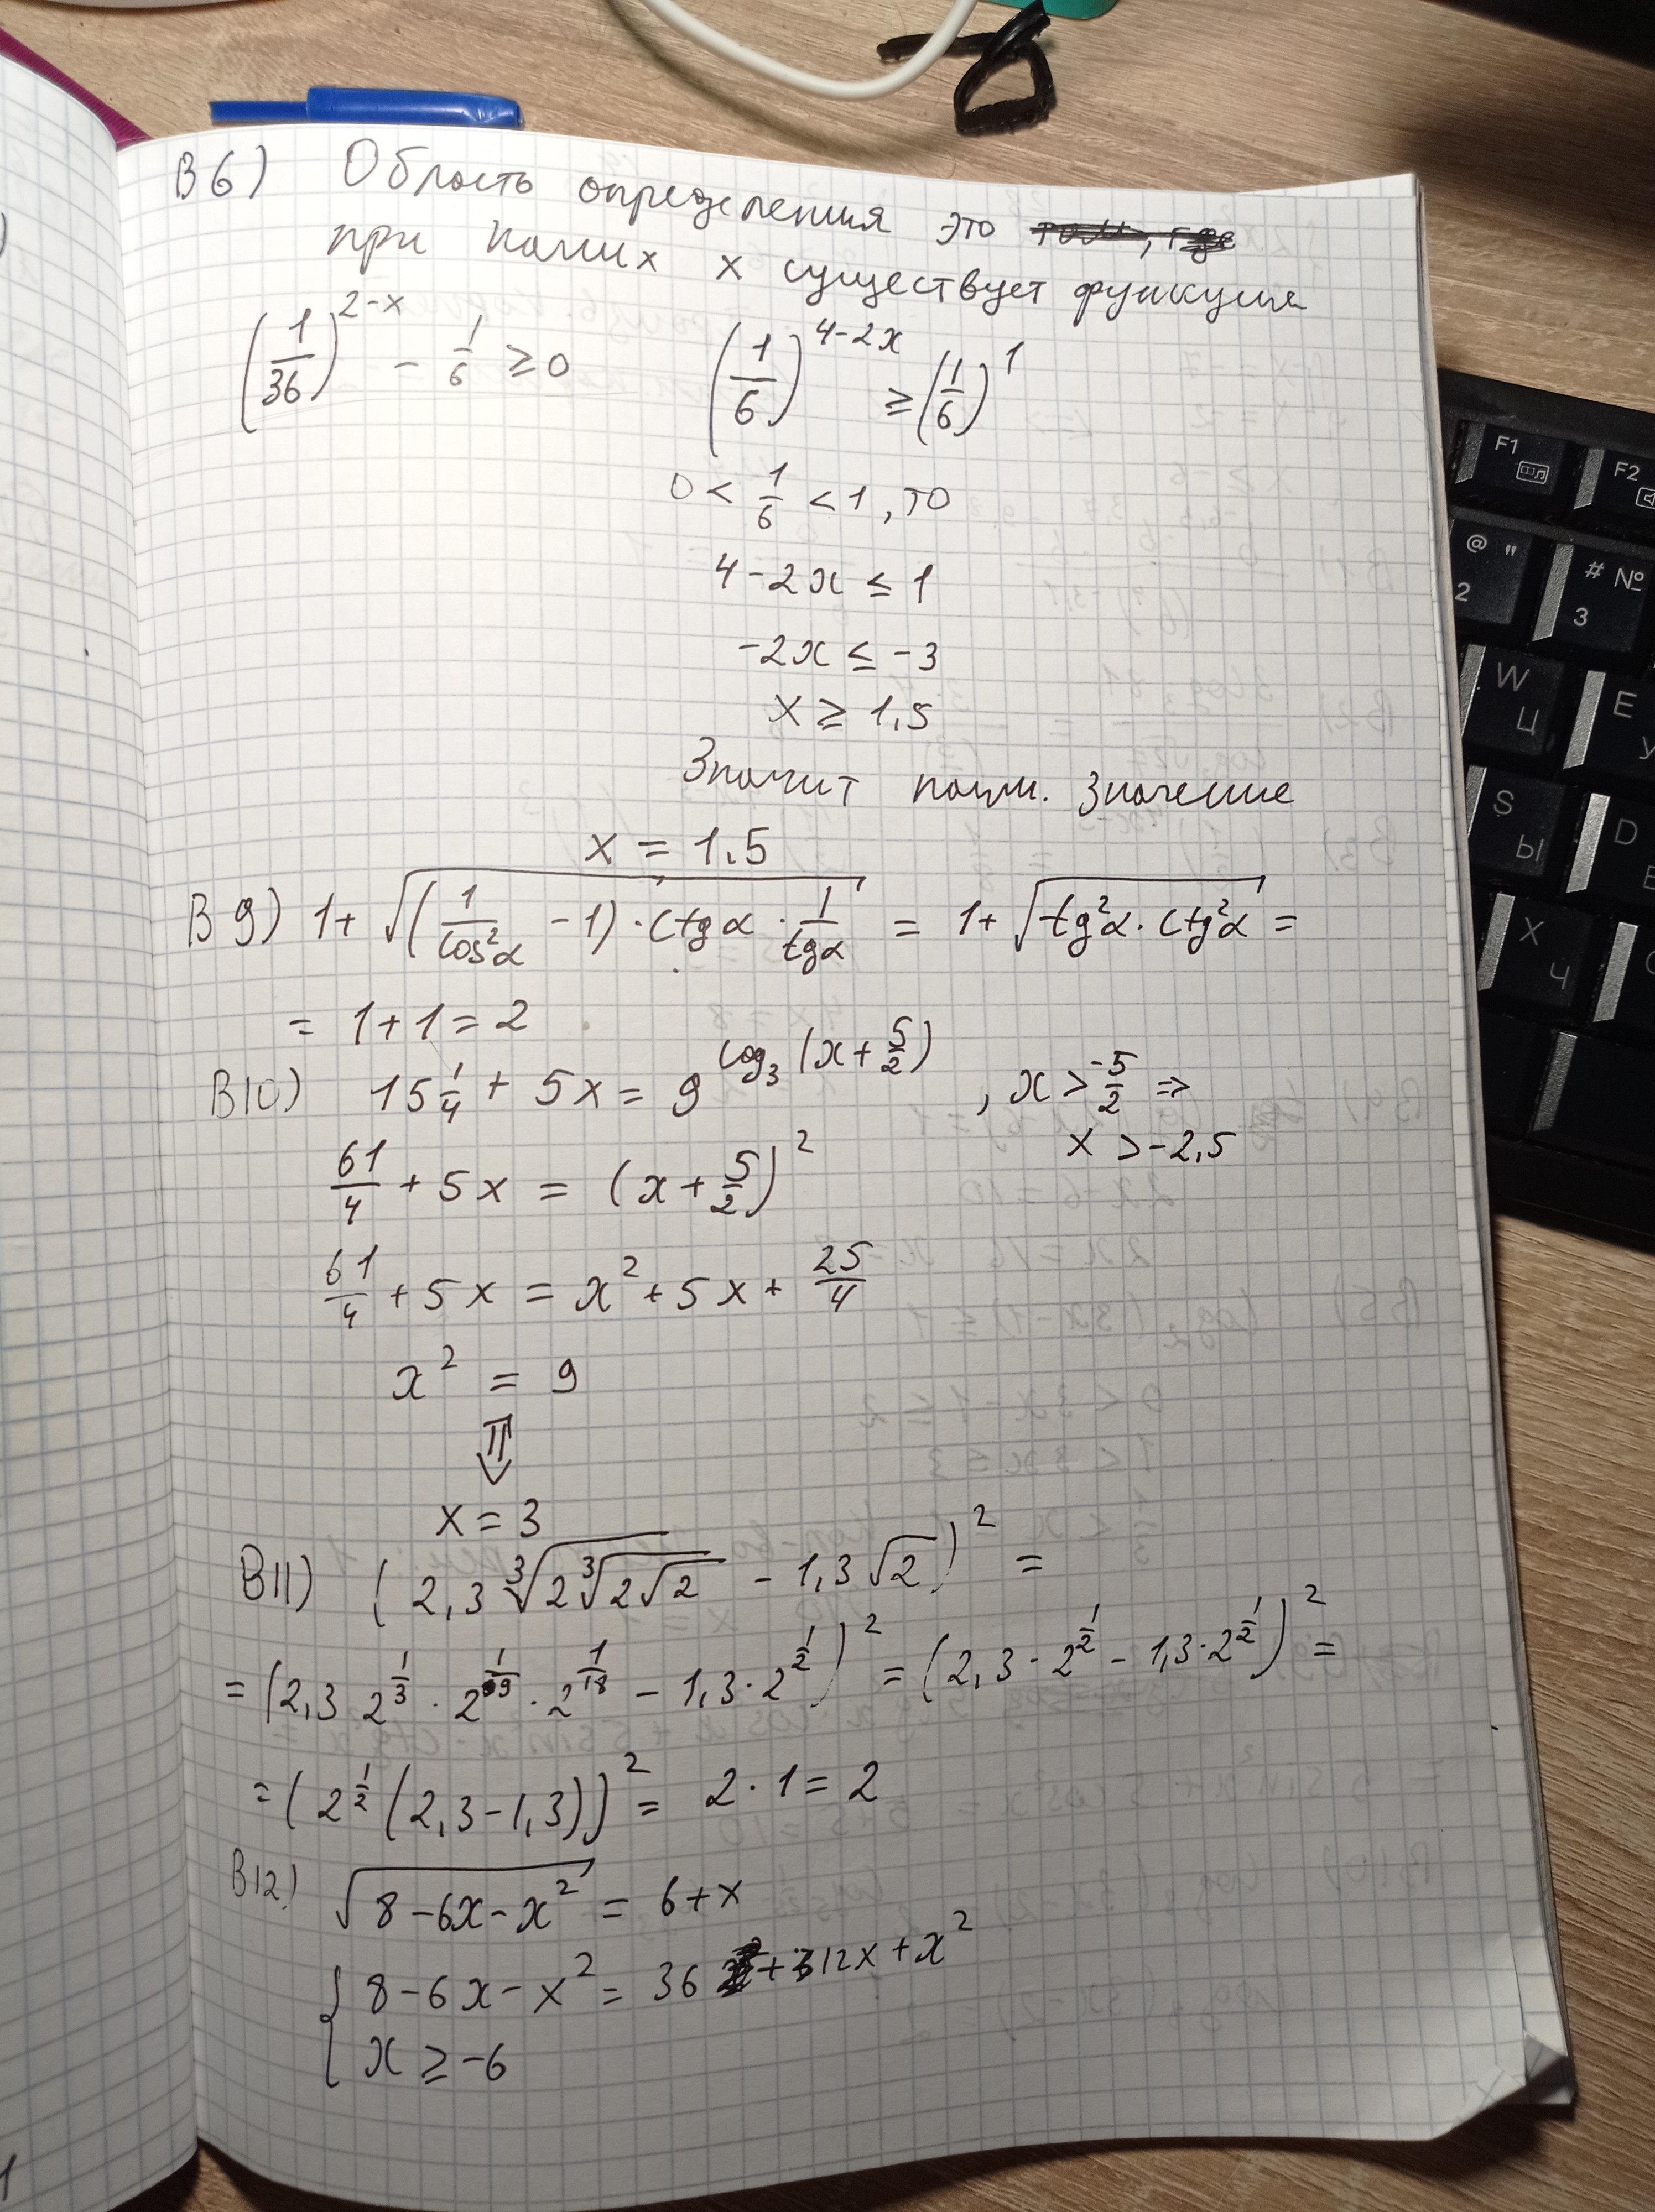 В6) Область определения это
при каких x существует функция
(1/36)^(2-x) - 1/6 ≥ 0   (1/6)^(4-2x) ≥ (1/6)^1
0 < 1/6 < 1, то
4 - 2x ≤ 1
-2x ≤ -3
x ≥ 1,5
Значит наим. значение
x = 1,5
В9) 1+ √((1/cos²α - 1) · ctgα · 1/tgα) = 1+ √(tg²α · ctg²α) =
= 1+1=2
В10) 15 1/4 + 5x = 9^(log₃(x+5/2)) , x > -5/2 ⇒
x > -2,5
61/4 + 5x = (x + 5/2)²
61/4 + 5x = x² + 5x + 25/4
x² = 9
⇓
x = 3
В11) (2,3 ∛(2∛(2√2)) - 1,3√2)² =
= (2,3 2^(1/3) · 2^(1/9) · 2^(1/18) - 1,3 · 2^(1/2))² = (2,3 · 2^(1/2) - 1,3 · 2^(1/2))² =
= (2^(1/2) (2,3 - 1,3))² = 2 · 1 = 2
В12) √(8 - 6x - x²) = 6+x
{ 8 - 6x - x² = 36 + 12x + x²
x ≥ -6
F1
F2
@ " 2
# № 3
W Ц
E У
S Ы
D
X Ч